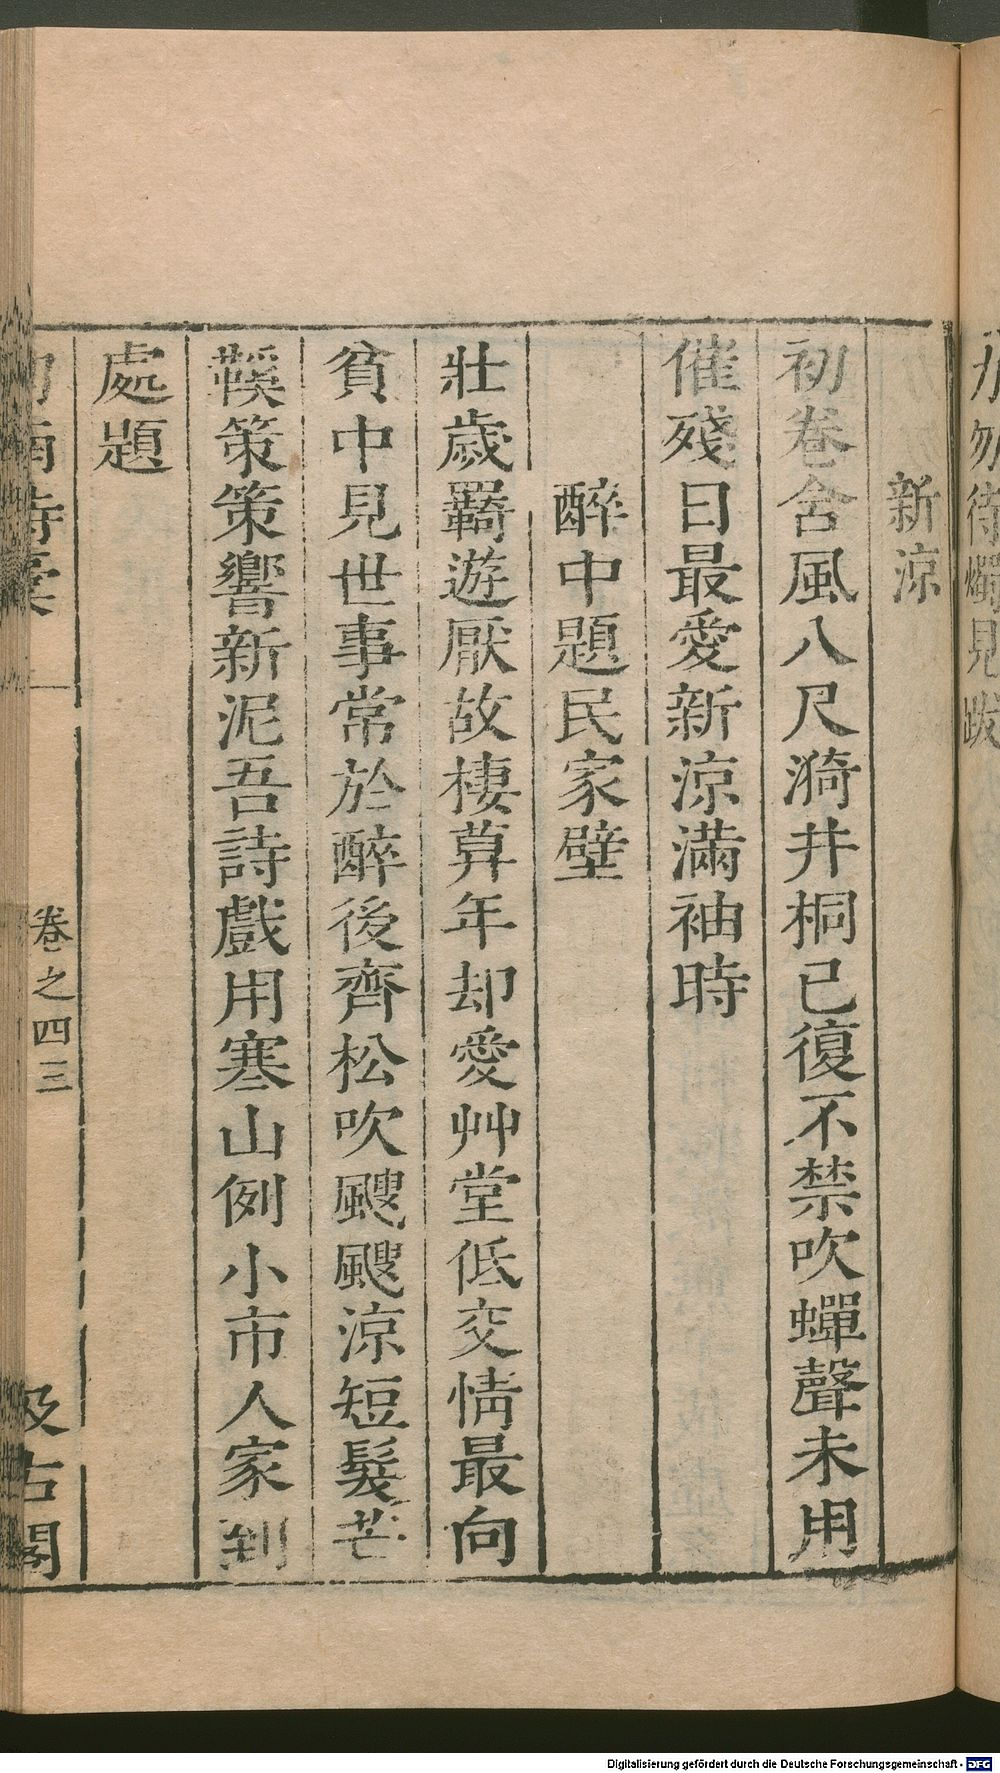 刀勿待燭見跋
新涼
初卷含風八尺漪井桐已復不禁吹蟬聲未用
催殘日最愛新涼滿袖時
醉中題民家壁
壯歲羈遊厭故棲莫年却愛艸堂低交情最向
貧中見世事常於醉後齊松吹颼颼涼短髮芒
鞵策策響新泥吾詩戲用寒山例小市人家到
處題
劍南詩稾
卷之四三
汲古閣
Digitalisierung gefördert durch die Deutsche Forschungsgemeinschaft - DFG